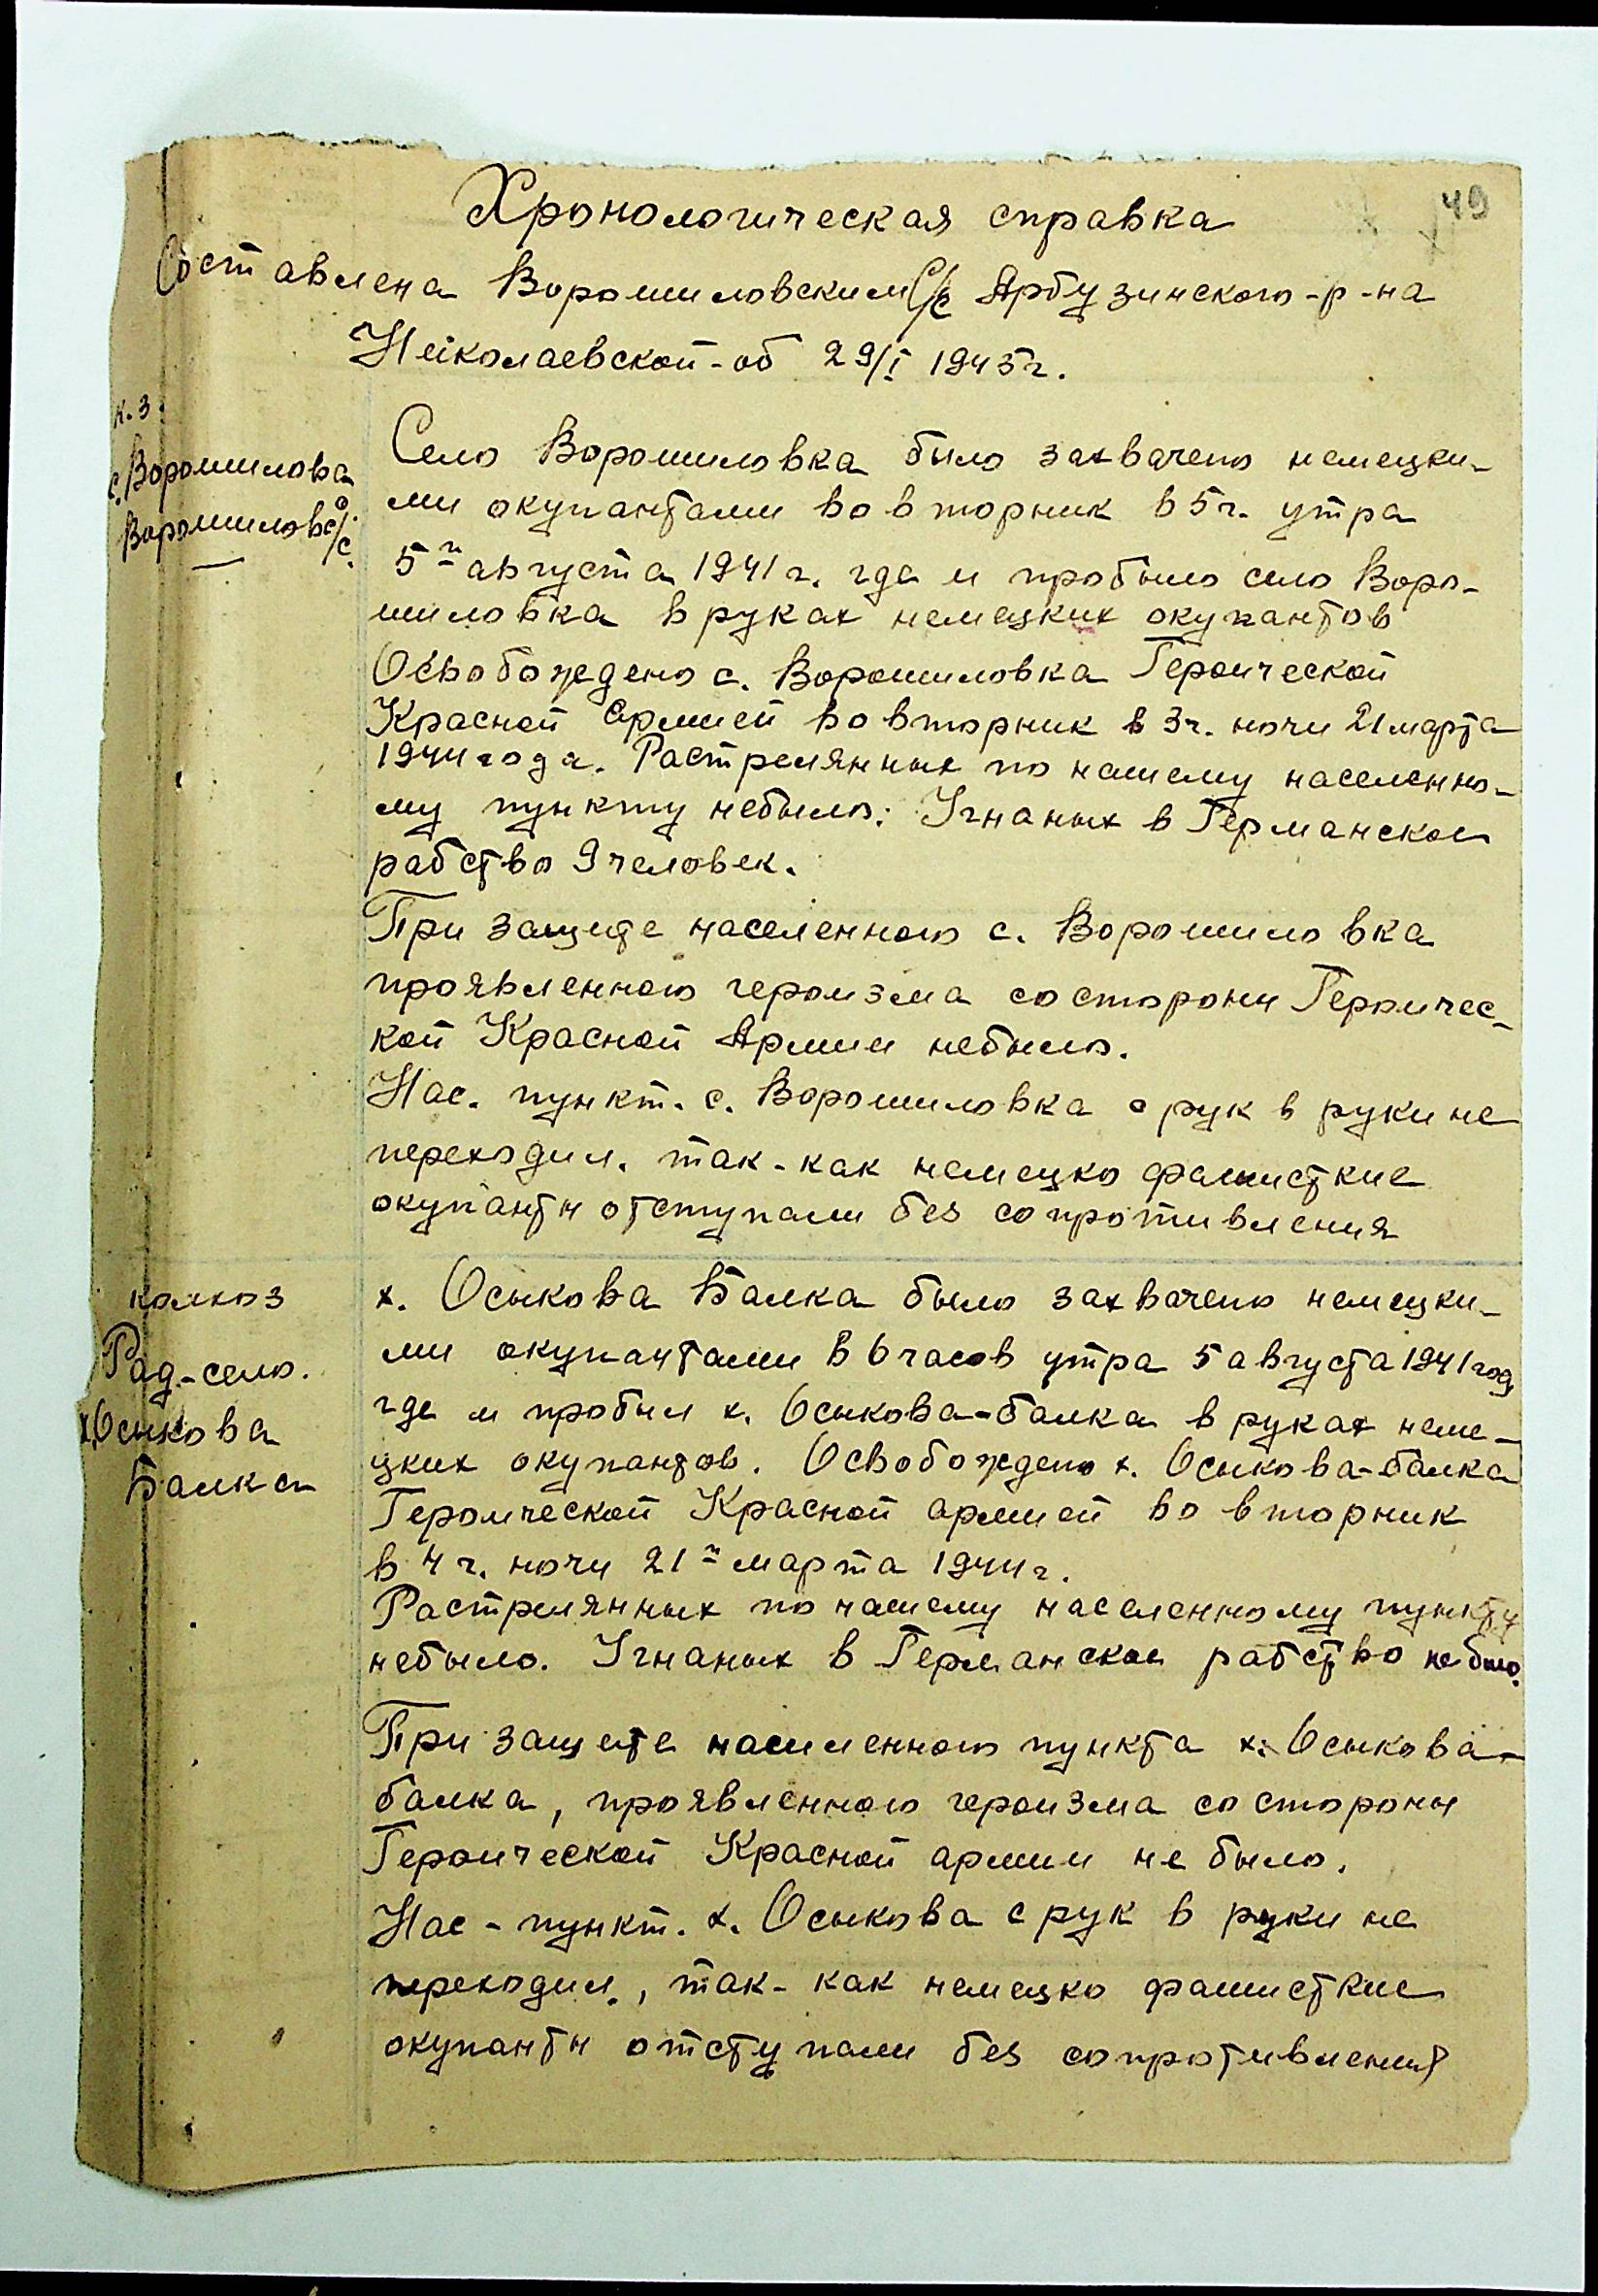 49
Хронологическая справка
Составлена Ворошиловским С/с Арбузинского-р-на
Николаевской-об 29/I 1945г.
к.з.
с. Ворошилова
Ворошиловс/с.
Село Ворошиловка было захвачено немецки-
ми окупантами во вторник в 5 г. утра
5го августа 1941 г. где и пробыло село Воро-
шиловка в руках немецких окупантов
Освобождено с. Ворошиловка Героической
Красной Армией во вторник в 3 ч. ночи 21 марта
1944 года. Растрелянных по нашему населенно-
му пункту небыло. Угнаных в Германское
рабство 9 человек.
При защите населенного с. Ворошиловка
проявленного героизма со стороны Героичес-
кой Красной Армии небыло.
Нас. пункт. с. Ворошиловка с рук в руки не
переходил. так-как немецко фашисткие
окупанты отступали без сопротивления
колхоз
Рад.-село.
х. Осыкова
Балка
х. Осыкова Балка было захвачено немецки-
ми окупантами в 6 часов утра 5 августа 1941 год
где и пробыл х. Осыкова-балка в руках неме-
цких окупантов. Освобождено х. Осыкова-балка
Героической Красной армией во вторник
в 4 г. ночи 21го марта 1944 г.
Растрелянных по нашему населенному пункту
небыло. Угнаных в Германское рабство не было.
При защете населенного пункта х. Осыкова-
балка, проявленного героизма со стороны
Героической Красной армии не было.
Нас-пункт. х. Осыкова с рук в руки не
переходил., так-как немецко фашисткие
окупанты отступали без сопротивления